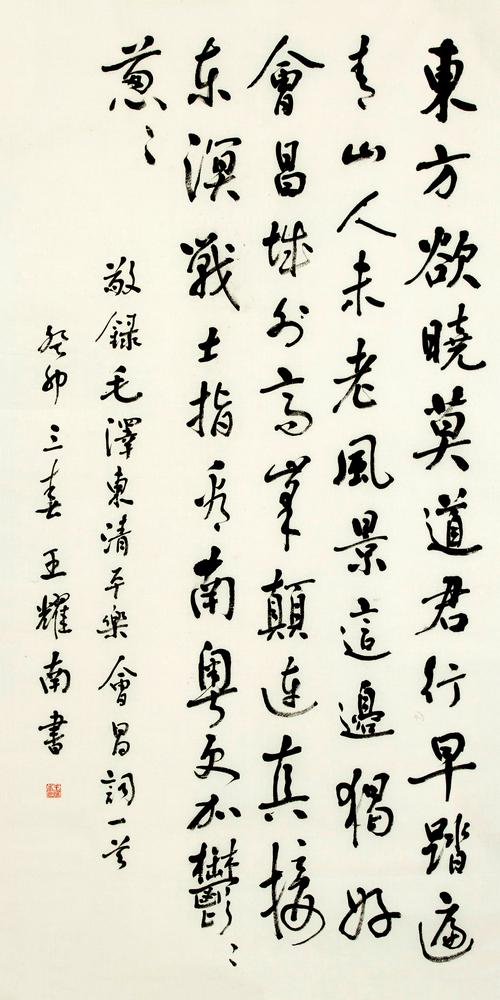 東方欲曉莫道君行早踏遍
青山人未老風景這邊獨好
會昌城外高峯顛連直接
东溟戰士指看南粵更加鬱〻
蔥〻
敬錄毛澤東清平樂會昌詞一首
癸卯三春王耀南書